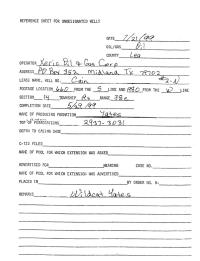 REFERENCE SHEET FOR UNDESIGNATED WELLS
DATE 7/21/99
OIL/GAS Oil
COUNTY Lea
OPERATOR Xeric Oil & Gas Corp
ADDRESS PO Box 352 Midland Tx 79702
LEASE NAME, WELL NO. Cain #2-N
FOOTAGE LOCATION 660 FROM THE S LINE AND FROM THE W LINE
SECTION 14 TOWNSHIP RANGE 38e
COMPLETION DATE 5/29/99
NAME OF PRODUCING FORMATION Yates
TOP OF PERFORATIONS 2937-3031
DEPTH TO CASING SHOE
C-123 FILED
NAME OF POOL FOR WHICH EXTENSION WAS ASKED
ADVERTISED FOR HEARING CODE NO.
NAME OF POOL FOR WHICH EXTENSION WAS ADVERTISED
PLACED IN BY ORDER NO. R-
REMARKS Wildcat Yates